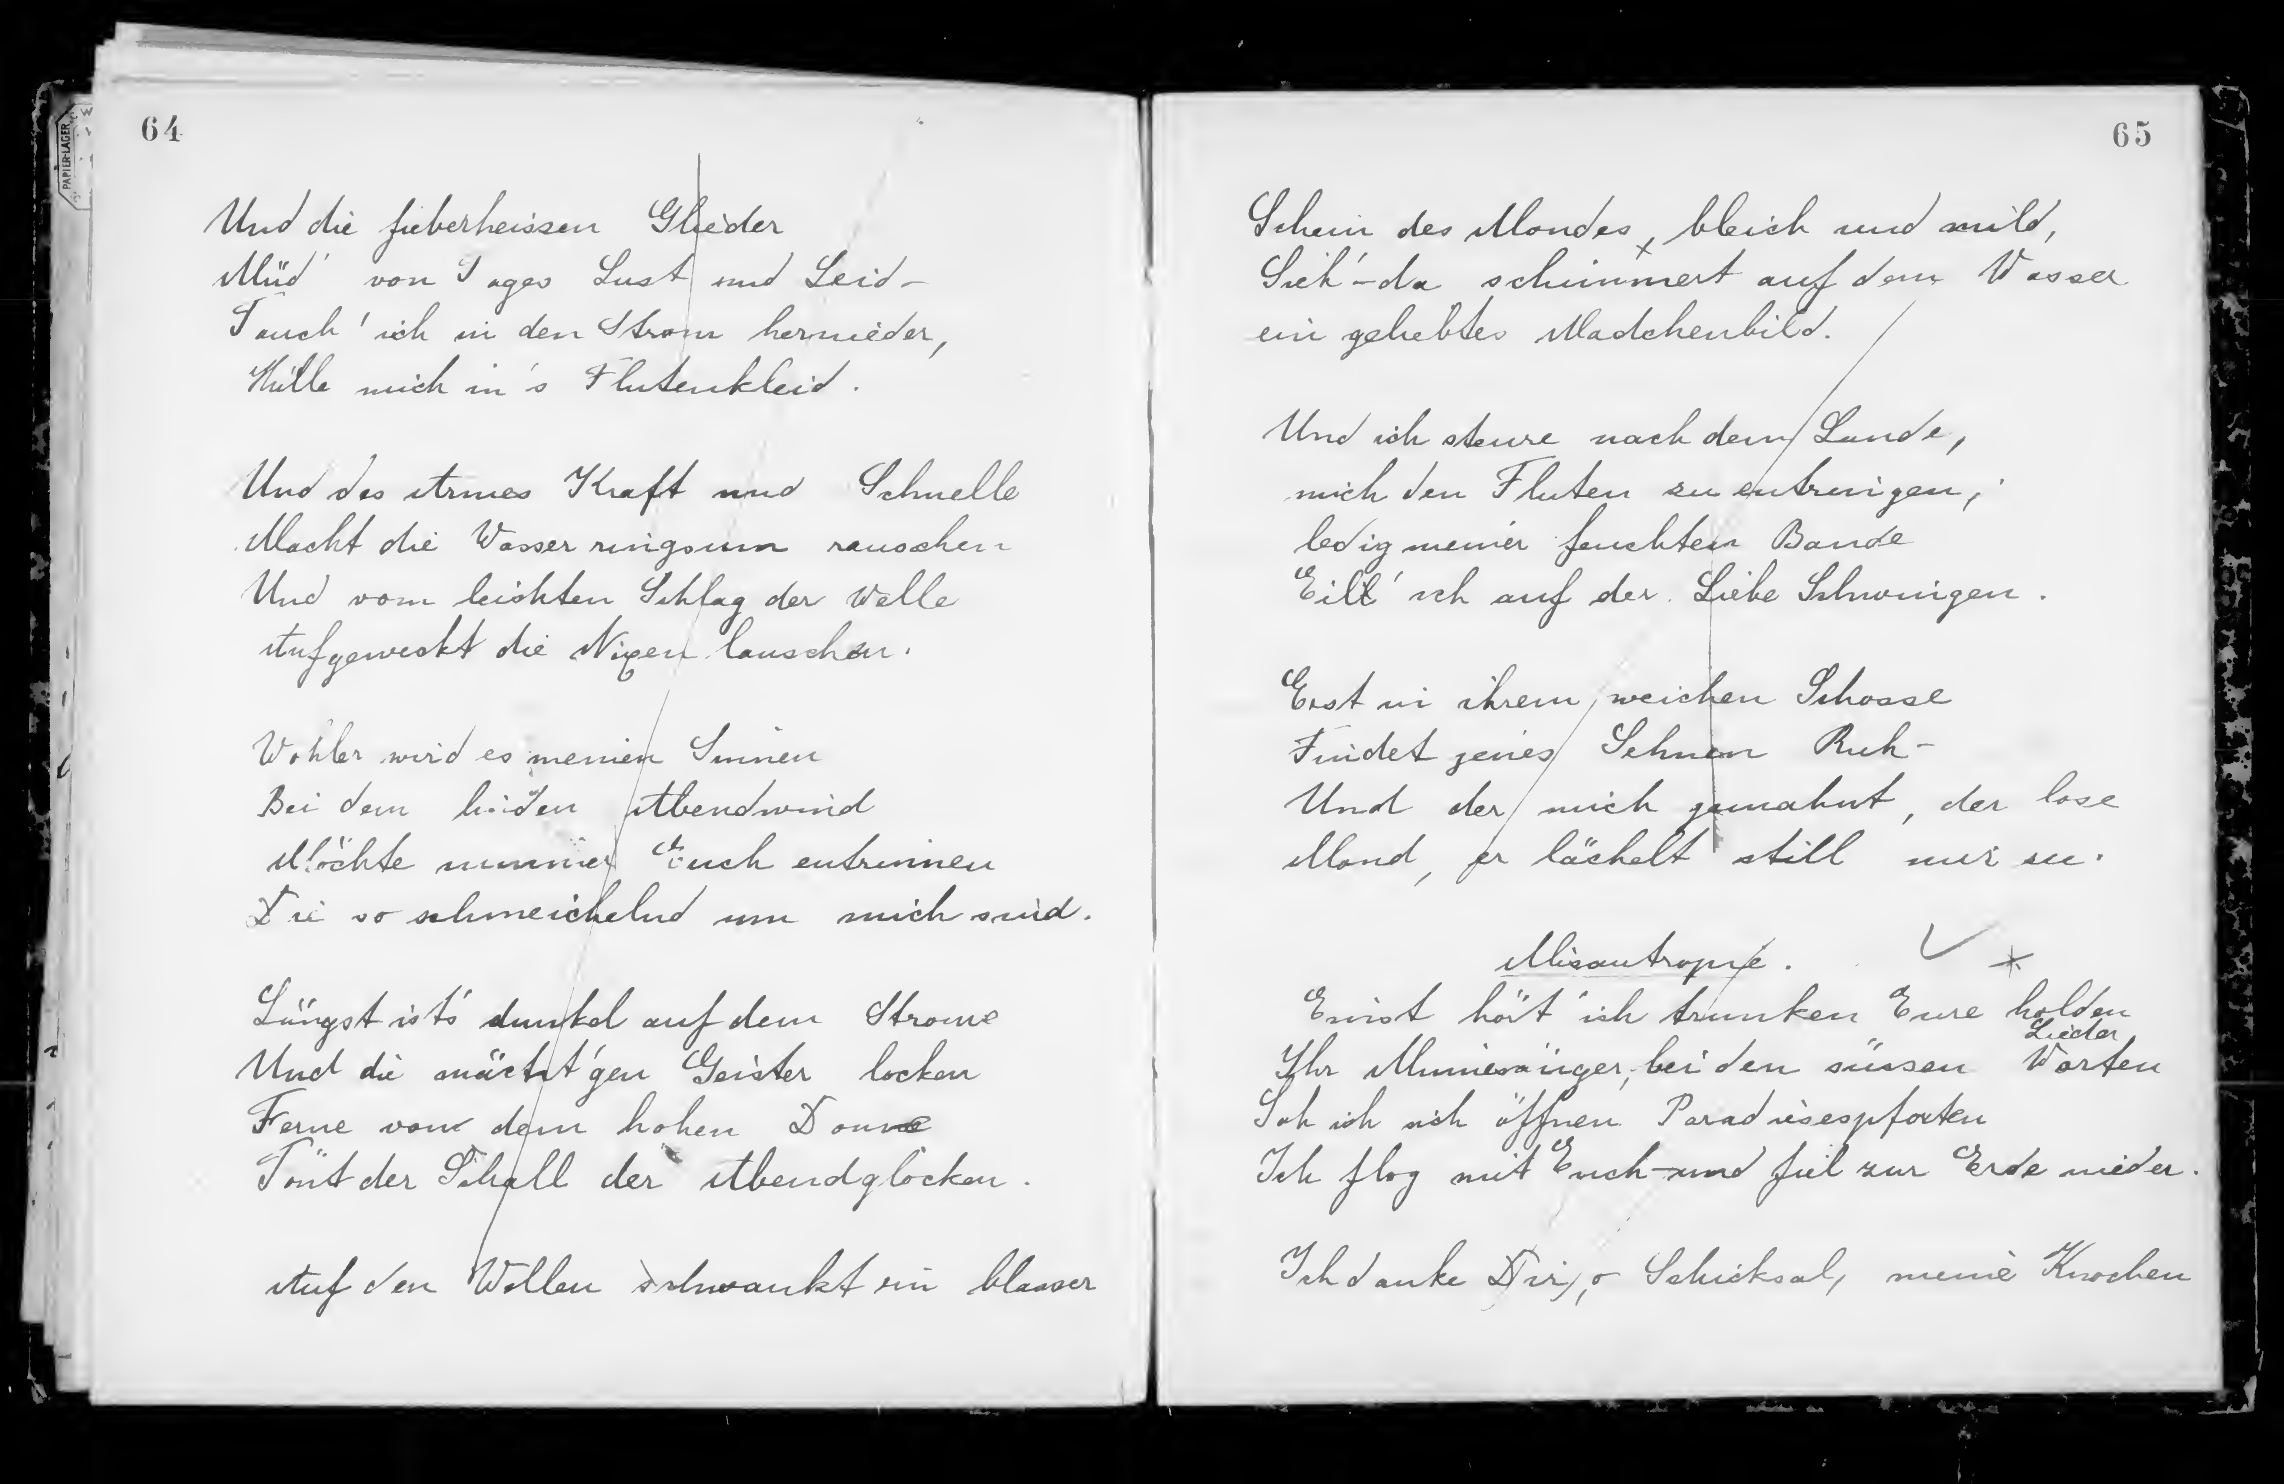 64
Und die fieberheissen Glieder
Müd' von Tages Lust und Leid –
Tauch' ich in den Strom hernieder,
Hülle mich in's Flutenkleid.
Und des Armes Kraft und Schnelle
Macht die Wasser ringsum rauschen
Und vom leichten Schlag der Welle
Aufgeweckt die Nixen lauschen.
Wohler wird es meinen Sinnen
Bei dem linden Abendwind
Möchte nimmer Euch entrinnen
Die so schmeichelnd um mich sind.
Längst ist's dunkel auf dem Strome
Und die mächt'gen Geister locken
Ferne von dem hohen Dome
Tönt der Schall der Abendglocken.
Auf den Wellen schwankt ein blasser
PAPIER-LAGER
65
Schein des Mondes, bleich und mild,
Sieh' – da schimmert auf dem Wasser
ein geliebtes Mädchenbild.
Und ich steure nach dem Lande,
mich den Fluten zu entringen,
ledig meiner feuchten Bande
Eil' ich auf der Liebe Schwingen.
Erst in ihrem weichen Schosse
Findet jenes Sehnen Ruh –
Und der mich gemahnt, der lose
Mond, er lächelt still mir zu.
Misantropie.
Einst hört' ich trunken Eure holden
Lieder
Ihr Minnesänger, bei den süssen Worten
Sah ich sich öffnen Paradiesespforten
Ich flog mit Euch – und fiel zur Erde nieder.
Ich danke Dir, o Schicksal, meine Knochen